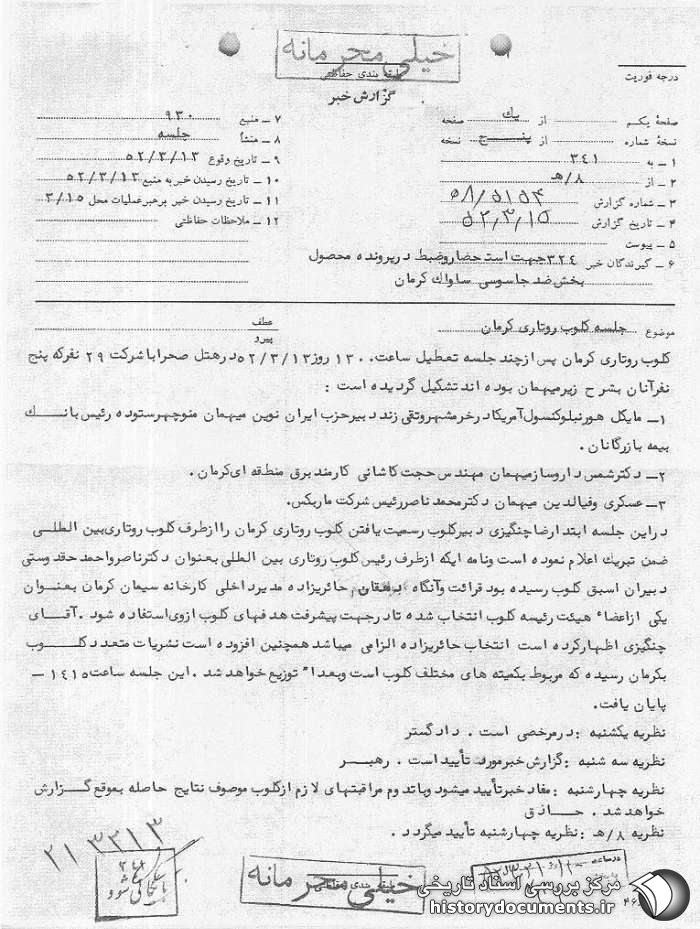 خیلی محرمانه
طبقه بندی حفاظتی
گزارش خبر
درجه فوریت
صفحهٔ یکم از یك صفحه
نسخهٔ شماره از پنــج نسخه
۱ـ به ۳۴۱
۲ـ از ۸/هـ
۳ـ شماره گزارش ۵۸/۵۱۵۳
۴ـ تاریخ گزارش ۵۲/۳/۱۵
۵ـ پیوست
۶ـ گیرندگان خبر ۳۲۴جهت استحضاروضبط درپرونده محصول
بخش ضد جاسوسی ساواك کرمان
۷ـ منبع ۹۳۰
۸ـ منشأ جلسه
۹ـ تاریخ وقوع ۵۲/۳/۱۳
۱۰ـ تاریخ رسیدن خبر به منبع ۵۲/۳/۱۳
۱۱ـ تاریخ رسیدن خبر برهبر عملیات محل ۳/۱۵
۱۲ـ ملاحظات حفاظتی
موضوع جلسه کلوب روتاری کرمان
عطف
پیرو
کلوب روتاری کرمان پس ازچند جلسه تعطیل ساعت ۱۳۰۰ روز۵۲/۳/۱۳درهتل صحرا باشرکت ۲۹ نفرکه پنج
نفرآنان بشرح زیرمیهمان بوده اند تشکیل گردیده است :
۱ـ مایکل هورنبلوکنسول آمریکادرخرمشهروتقی زند دبیرحزب ایران نوین میهمان منوچهرستوده رئیس بانــك
بیمه بازرگانان .
۲ـ دکترشمس داروسازمیهمان مهندس حجت کاشانی کارمند برق منطقه ای کرمان .
۳ـ عسکری وفیالدین میهمان دکترمحمد ناصررئیس شرکت ماربکس.
دراین جلسه ابتدا رضاچنگیزی دبیرکلوب رسمیت یافتن کلوب روتاری کرمان رااز طرف کلوب روتاری بین المللی
ضمن تبریك اعلام نموده است ونامه ایکه ازطرف رئیس کلوب روتاری بین المللی بعنوان دکترناصرواحمد حقدوستی
دبیران اسبق کلوب رسیده بود قرائت وآنگاه دهقان حائریزاده مدیرداخلی کارخانه سیمان کرمان بعنوان
یکی ازاعضاء هیئت رئیسه کلوب انتخاب شده تادرجهت پیشرفت هدفهای کلوب ازوی استفاده شود . آقــای
چنگیزی اظهارکرده است انتخاب حائریزاده الزامی میباشد همچنین افزوده است نشریات متعدد کلــوب
بکرمان رسیده که مربوط بکمیته های مختلف کلوب است وبعداً توزیع خواهد شد . این جلسه ساعت ۱۴۱۵ـ
پایان یافت.
نظریه یکشنبه :درمرخصی است . دادگستر
نظریه سه شنبه :گزارش خبرمورد تأیید است . رهبــر
نظریه چهارشنبه : مفاد خبرتأیید میشود وباتداوم مراقبتهای لازم ازکلوب موصوف نتایج حاصله بموقع گــزارش
خواهد شد . حــاذق
نظریه ۸/هـ :نظریه چهارشنبه تأیید میگردد .
۲۱۳۲۱۳
بایگانی شود
خیلی محرمانه
طبقه بندی حفاظتی
مرکز بررسی اسناد تاریخی
historydocuments.ir